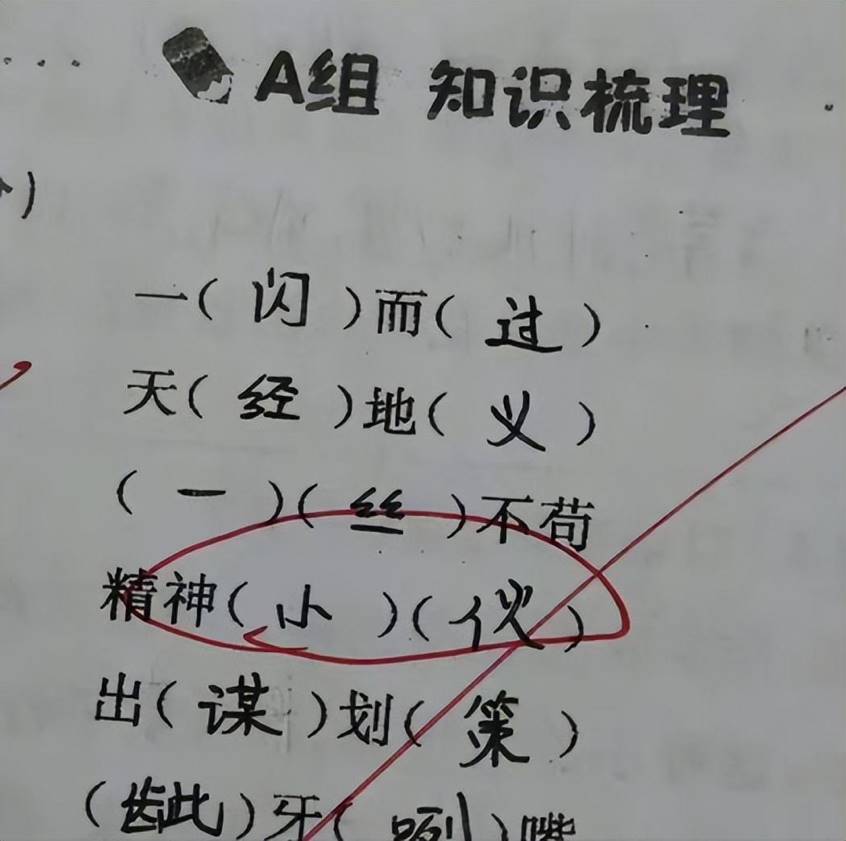 A组 知识梳理
)
一(闪)而(过)
天(经)地(义)
(一)(丝)不苟
精神(小)(伙)
出(谋)划(策)
(龇)牙(咧)嘴